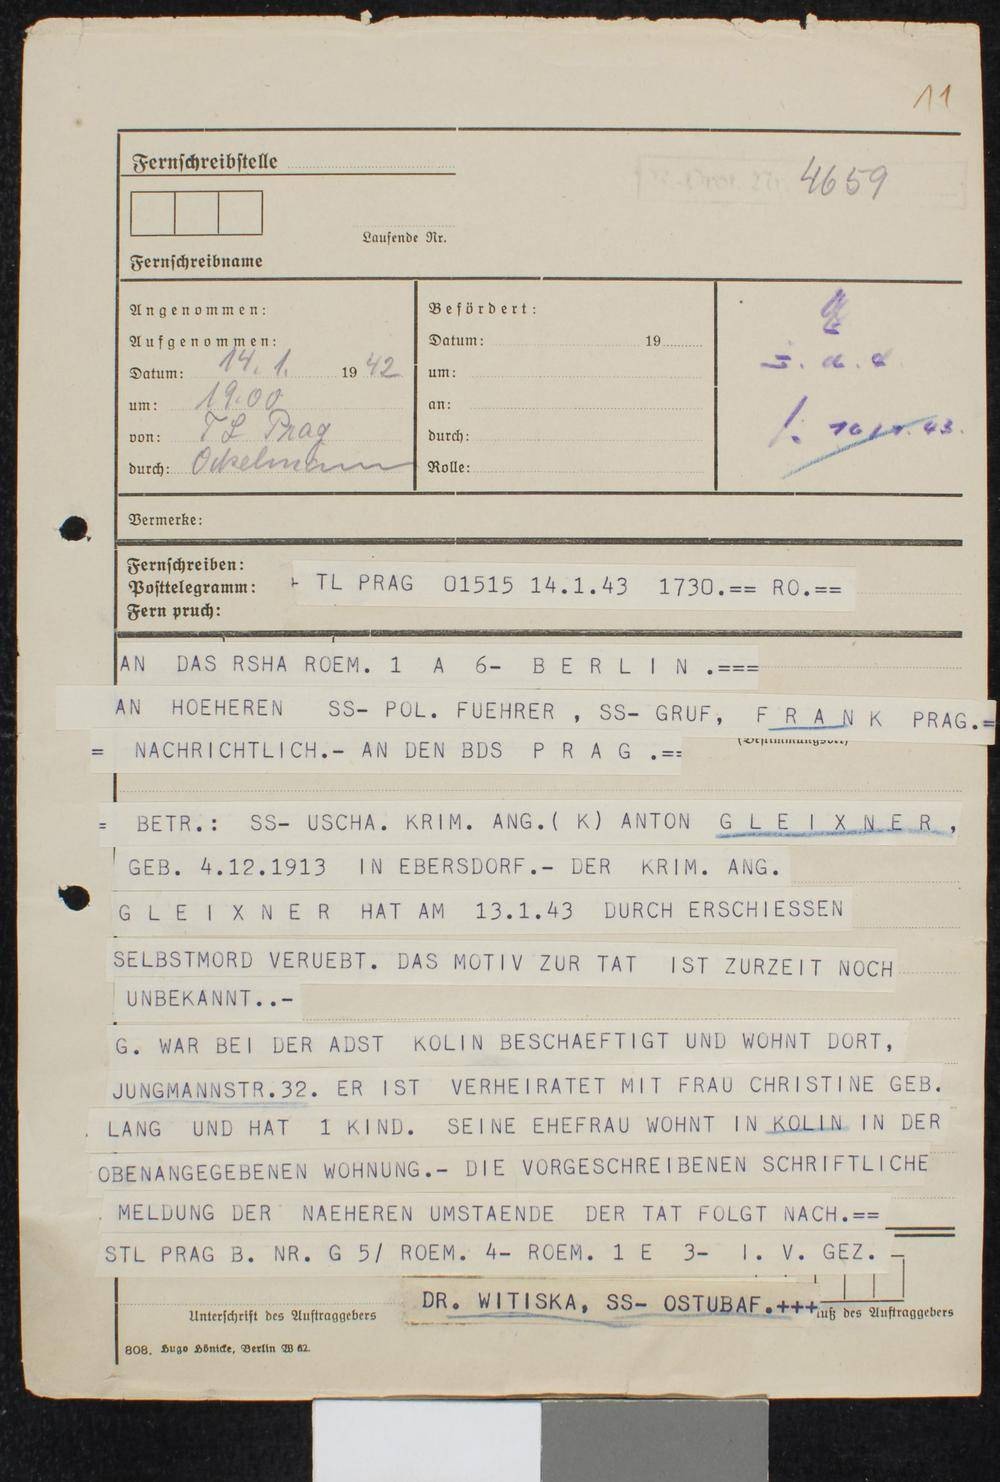 11
Fernschreibstelle
4659
Laufende Nr.
Fernschreibname
Angenommen:
Aufgenommen:
Datum: 14. 1. 1942
um: 19.00
von: TL Prag
durch: Ockelmann
Befördert:
Datum: 19
um:
an:
durch:
Rolle:
Vermerke:
Fernschreiben:
Posttelegramm:
Fern pruch:
+ TL PRAG 01515 14.1.43 1730.== RO.==
AN DAS RSHA ROEM. 1 A 6- B E R L I N .===
AN HOEHEREN SS- POL. FUEHRER , SS- GRUF, F R A N K PRAG.=
= NACHRICHTLICH.- AN DEN BDS P R A G .==
= BETR.: SS- USCHA. KRIM. ANG.( K) ANTON G L E I X N E R ,
GEB. 4.12.1913 IN EBERSDORF.- DER KRIM. ANG.
G L E I X N E R HAT AM 13.1.43 DURCH ERSCHIESSEN
SELBSTMORD VERUEBT. DAS MOTIV ZUR TAT IST ZURZEIT NOCH
UNBEKANNT..-
G. WAR BEI DER ADST KOLIN BESCHAEFTIGT UND WOHNT DORT,
JUNGMANNSTR.32. ER IST VERHEIRATET MIT FRAU CHRISTINE GEB.
LANG UND HAT 1 KIND. SEINE EHEFRAU WOHNT IN KOLIN IN DER
OBENANGEGEBENEN WOHNUNG.- DIE VORGESCHREIBENEN SCHRIFTLICHE
MELDUNG DER NAEHEREN UMSTAENDE DER TAT FOLGT NACH.==
STL PRAG B. NR. G 5/ ROEM. 4- ROEM. 1 E 3- I. V. GEZ.
DR. WITISKA, SS- OSTUBAF.+++
Unterschrift des Auftraggebers
luß des Auftraggebers
808. Hugo Hönicke, Berlin W 62.